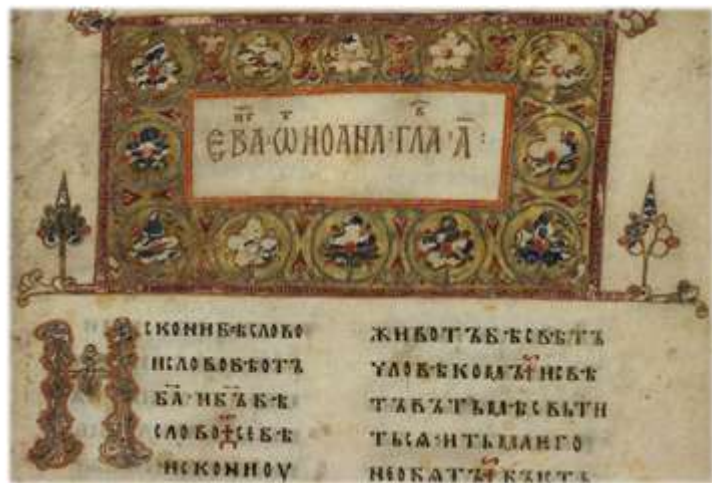 ЄВАⷩ҇ⷢ·Ѡⷮ ИОАНА·ГЛАⷡ҇·А҃:
ИСКОНИБѢСЛОВО
ИСЛОВОБѢОТЪ
Б҃А·ИБ҃ЪБѢ
СЛОВО СЕБѢ
ИСКОНИОУ
ЖИВОТЪБѢСВѢТЪ
ЧЛОВѢКОМЪ ИСВѢ
ТЪВЪТЬМѢСВЬТИ
ТЬСѦ·ИТЬМАѤГО
НЕОБѦТЪ БЪІСТЬ